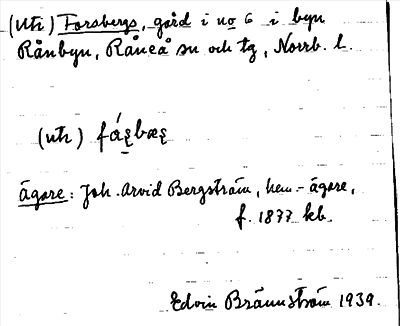 (utr) Forsbergs, gård i no 6 i byn
Rånbyn, Råneå sn och tg, Norrb. l.
(utr)
ägare: Joh. Arvid Bergström, hem.-ägare,
f. 1877 kb.
Edvin Brännström 1939.